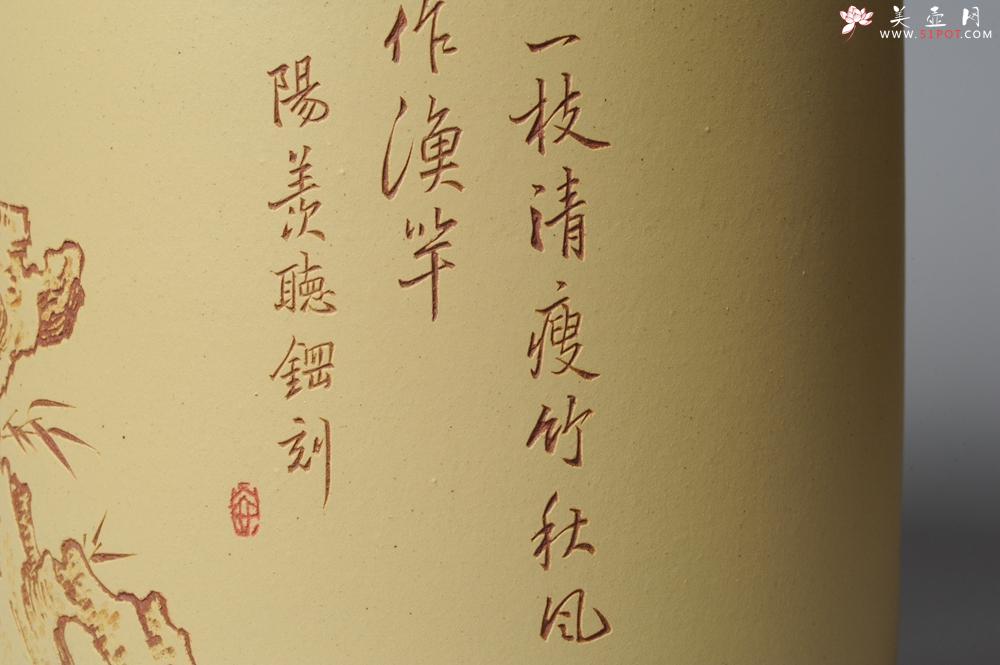 一枝清瘦竹秋风
作渔竿
陽羨聽鋼刻
美壶网
WWW.51POT.COM